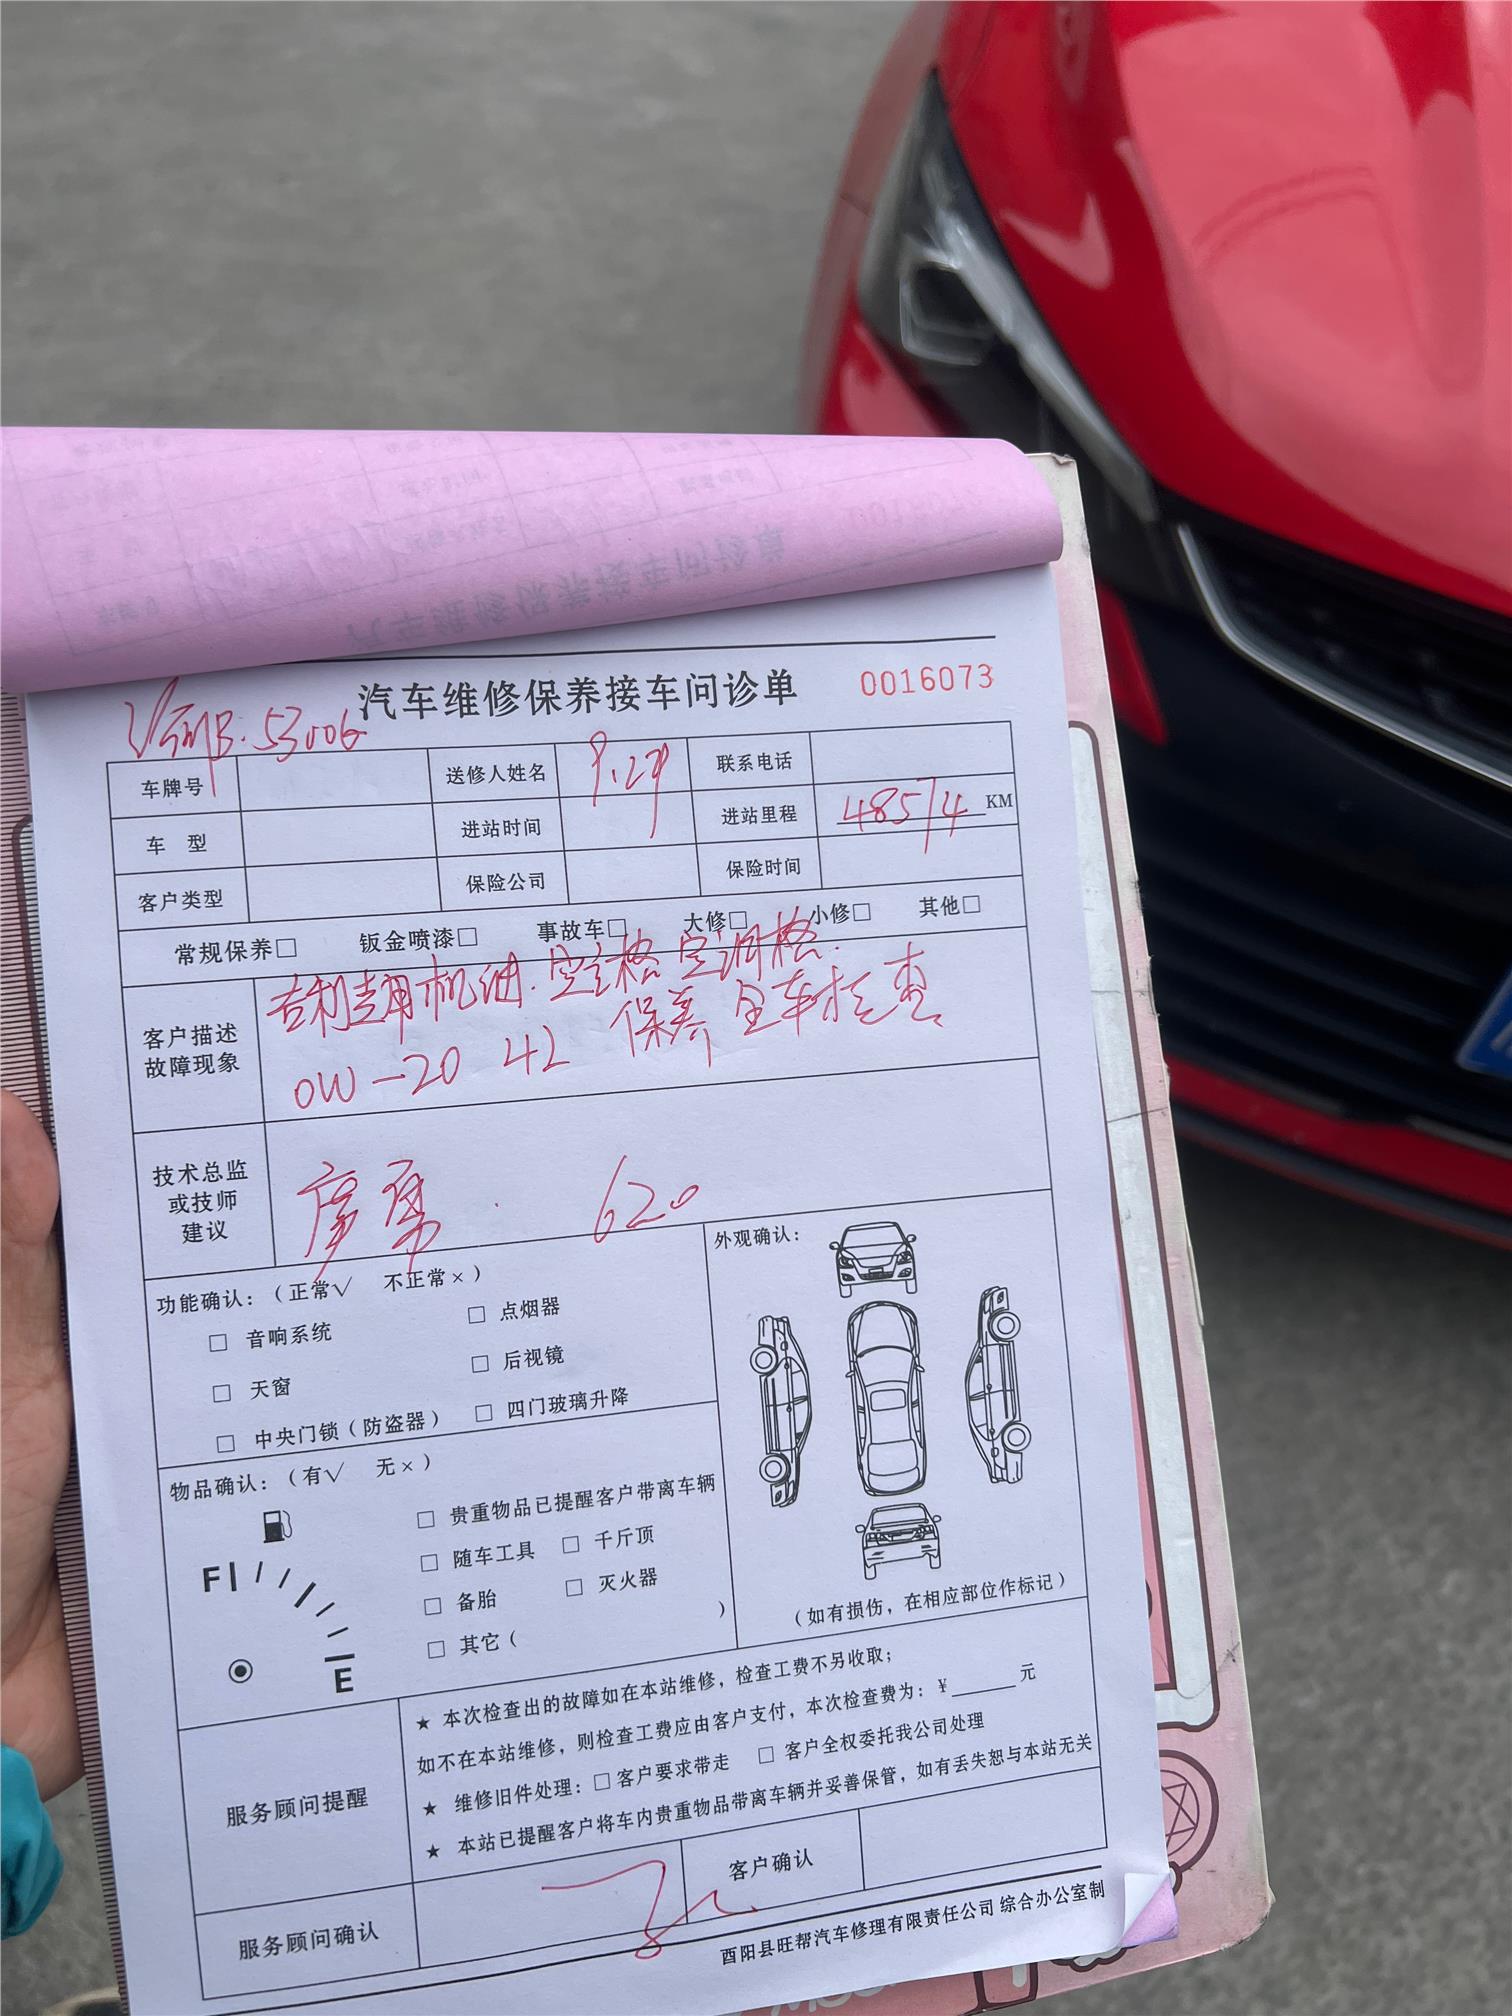 汽车维修保养接车问诊单 0016073
车牌号 送修人姓名 9.29 联系电话
车 型 进站时间 进站里程 48574 KM
客户类型 保险公司 保险时间
常规保养□ 钣金喷漆□ 事故车□ 大修□ 小修□ 其他□
客户描述
故障现象
吉利专用机油. 空气格 空调格.
0W-20 4L 保养 全车检查
技术总监
或技师
建议
620
功能确认:(正常√ 不正常×)
□ 音响系统 □ 点烟器
□ 天窗 □ 后视镜
□ 中央门锁(防盗器) □ 四门玻璃升降
外观确认:
(如有损伤,在相应部位作标记)
物品确认:(有√ 无×)
F
E
□ 贵重物品已提醒客户带离车辆
□ 随车工具 □ 千斤顶
□ 备胎 □ 灭火器
□ 其它( )
服务顾问提醒
★ 本次检查出的故障如在本站维修,检查工费不另收取;
如不在本站维修,则检查工费应由客户支付,本次检查费为:¥______元
★ 维修旧件处理:□客户要求带走 □ 客户全权委托我公司处理
★ 本站已提醒客户将车内贵重物品带离车辆并妥善保管,如有丢失恕与本站无关
服务顾问确认 客户确认
酉阳县旺帮汽车修理有限责任公司 综合办公室制